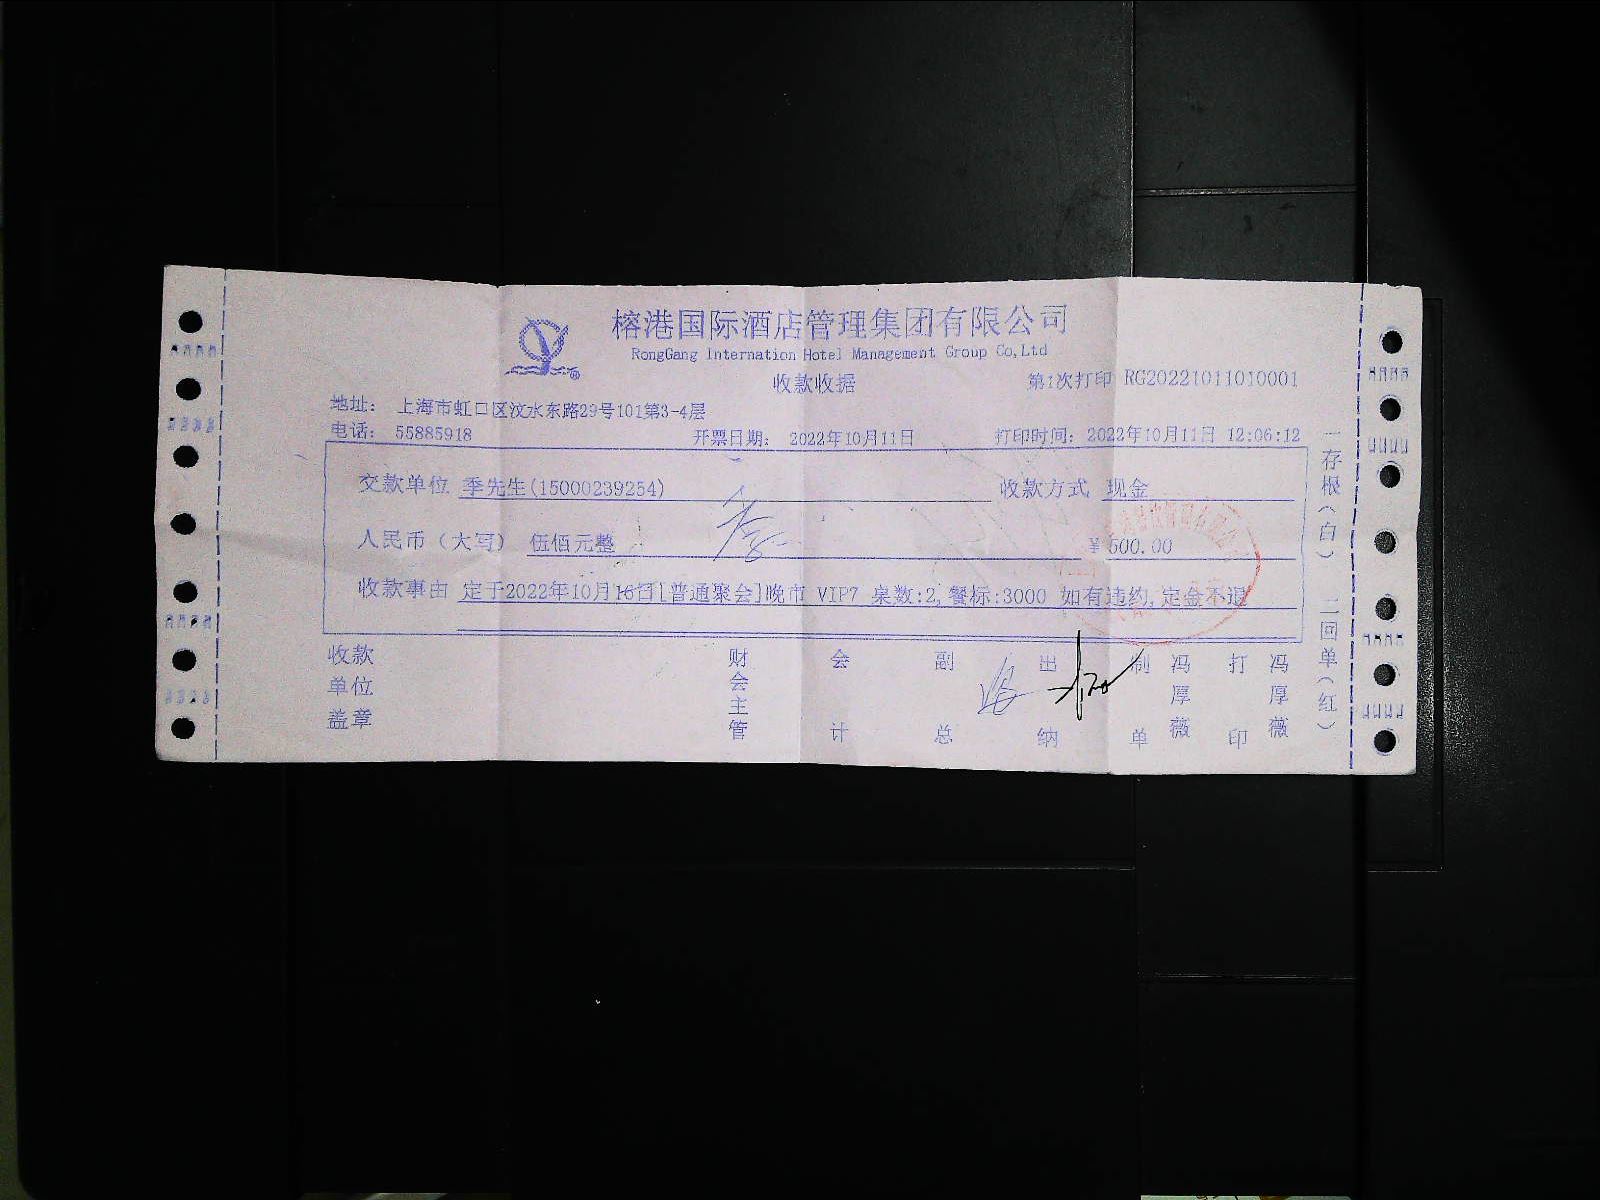 榕港国际酒店管理集团有限公司
RongGang Internation Hotel Management Group Co,Ltd
收款收据
第1次打印 RG20221011010001
地址： 上海市虹口区汶水东路29号101第3-4层
电话： 55885918 开票日期： 2022年10月11日 打印时间：2022年10月11日 12:06:12
交款单位 季先生(15000239254) 收款方式 现金
人民币（大写） 伍佰元整 ￥500.00
收款事由 定于2022年10月16日[普通聚会]晚市 VIP7 桌数:2,餐标:3000 如有违约,定金不退
收款单位盖章 财会主管 会计 副总 出纳 制单 冯厚薇 打印 冯厚薇
一存根（白） 二回单（红）